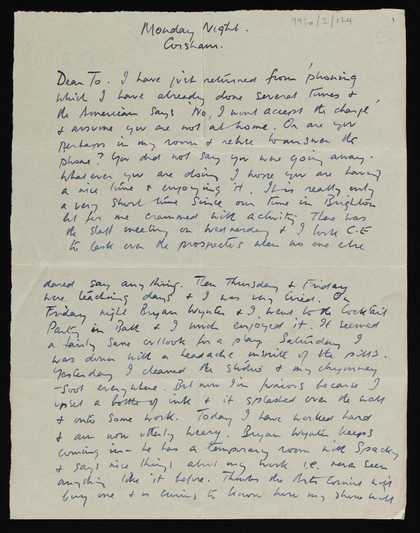 7950/2/124
1
Monday Night.
Corsham.
Dear To. I have just returned from 'phoning
which I have already done several times &
the American says 'No, I wont accept the charge'
& assume you are not at home. Or are you
perhaps in my room & refuse to answer the
phone? You did not say you were going away.
Whatever you are doing I hope you are having
a nice time & enjoying it. It is really only
a very short time since our time in Brighton
but for me crammed with activity. There was
the staff meeting on Wednesday & I took C.E
to task over the prospectus when no one else
dared say anything. Then Thursday & Friday
were teaching days & I was very tired. On
Friday night Bryan Wynter & I went to the Cocktail
Party in Bath & I much enjoyed it. It seemed
a fairly sane outlook for a play. Saturday I
was down with a headache inspite of the pills.
Yesterday I cleaned the studio & my chymney
- Soot everywhere. But now I'm furious because I
upset a bottle of ink & it splashed over the wall
& onto some work. Today I have worked hard
& am now utterly weary. Bryan Wynter keeps
coming in - he has a temporary room with
& says nice things about my work i.e. never seen
anything like it before. Thinks the Arts Council
buy one & is coming to know